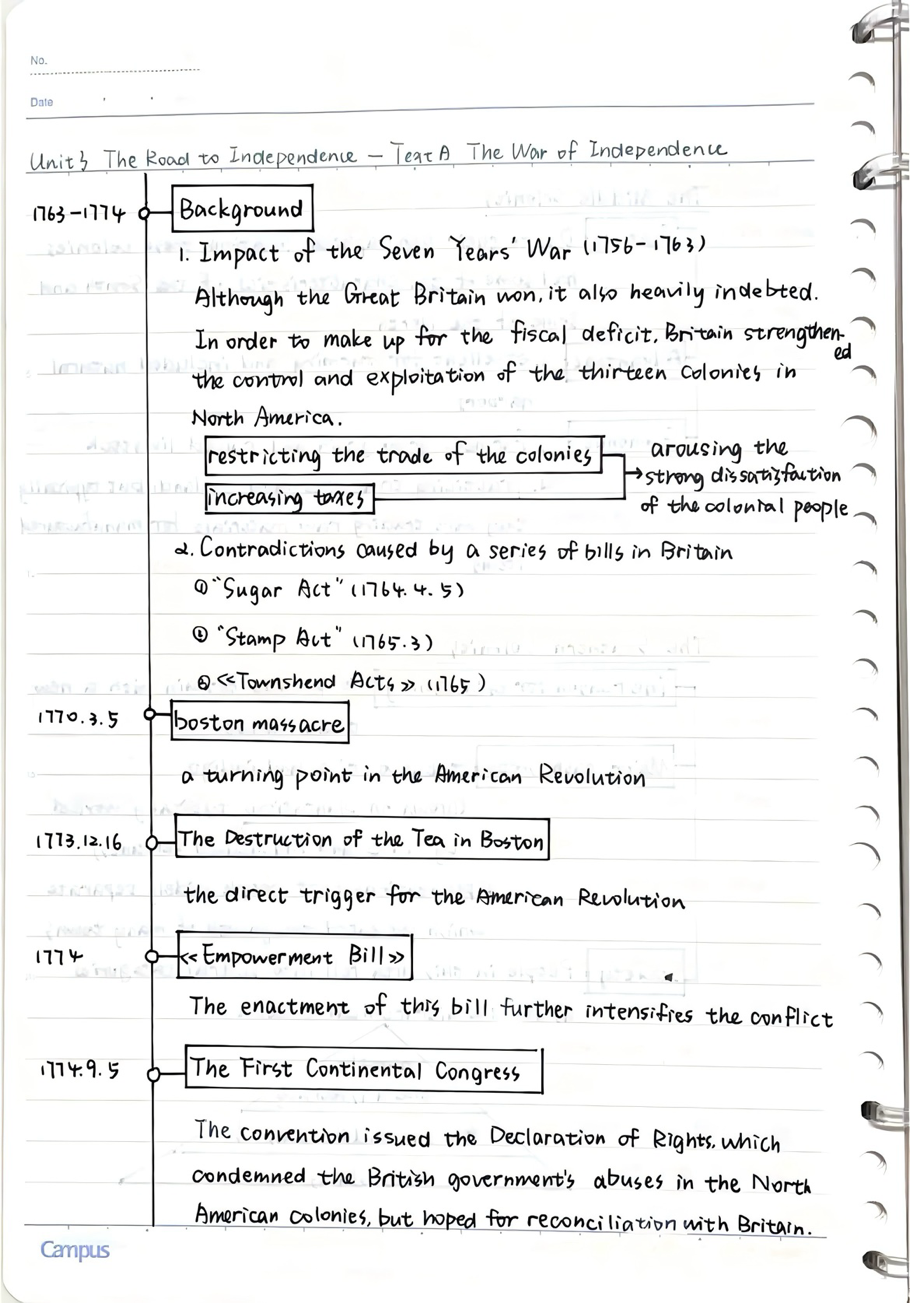 No.
Date
Unit 3 The Road to Independence — Text A The War of Independence
1763-1774 Background
1. Impact of the Seven Years' War (1756-1763)
Although the Great Britain won, it also heavily indebted.
In order to make up for the fiscal deficit, Britain strengthen-
ed
the control and exploitation of the thirteen Colonies in
North America.
restricting the trade of the colonies
increasing taxes
arousing the
strong dissatisfaction
of the colonial people
2. Contradictions caused by a series of bills in Britain
① "Sugar Act" (1764.4.5)
② "Stamp Act" (1765.3)
③ <<Townshend Acts>> (1765)
1770.3.5 boston massacre
a turning point in the American Revolution
1773.12.16 The Destruction of the Tea in Boston
the direct trigger for the American Revolution
1774 <<Empowerment Bill>>
The enactment of this bill further intensifies the conflict
1774.9.5 The First Continental Congress
The convention issued the Declaration of Rights, which
condemned the British government's abuses in the North
American colonies, but hoped for reconciliation with Britain.
Campus